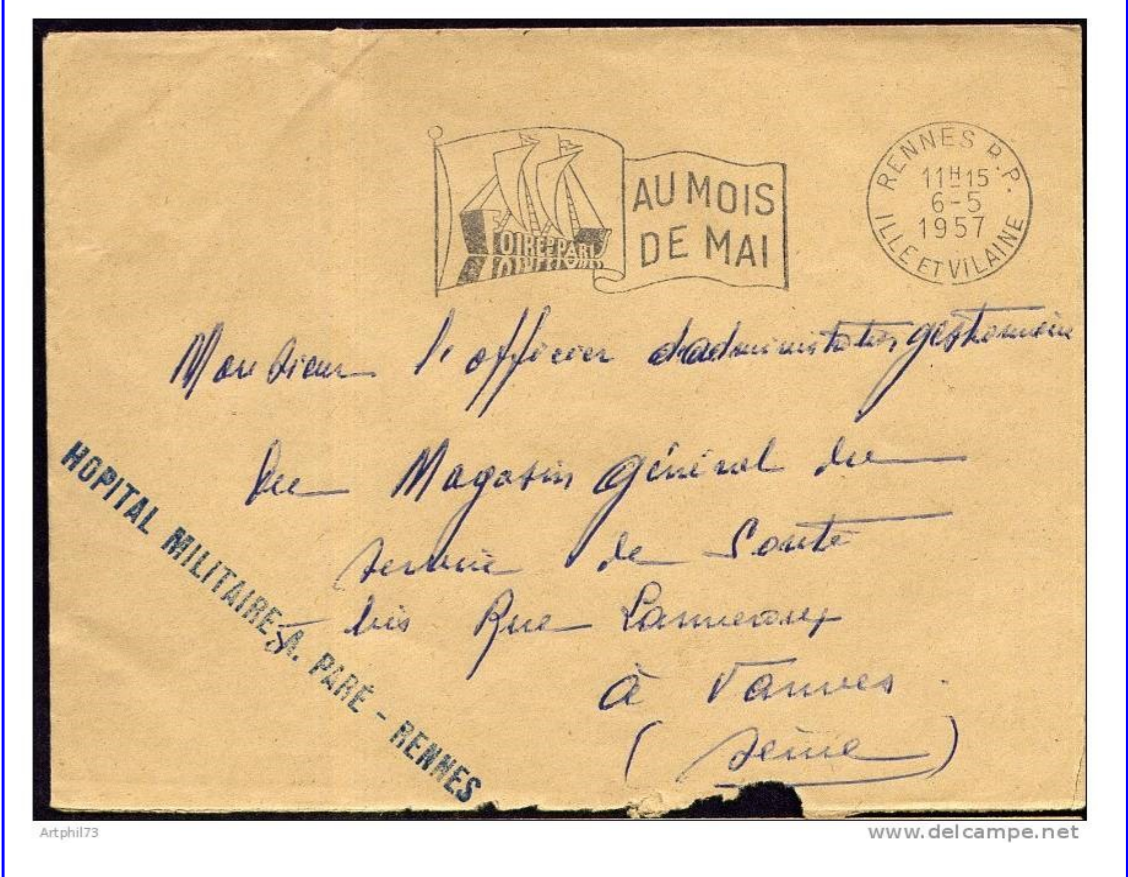 FOIRE DE PARIS
AU MOIS
DE MAI
RENNES R.P.
11H15
6-5
1957
ILLE ET VILAINE
Monsieur l'officier d'administration gestionnaire
du Magasin Général du
service de Santé
5 bis Rue
à Vanves
(Seine)
HOPITAL MILITAIRE A. PARÉ - RENNES
Artphil73
www.delcampe.net